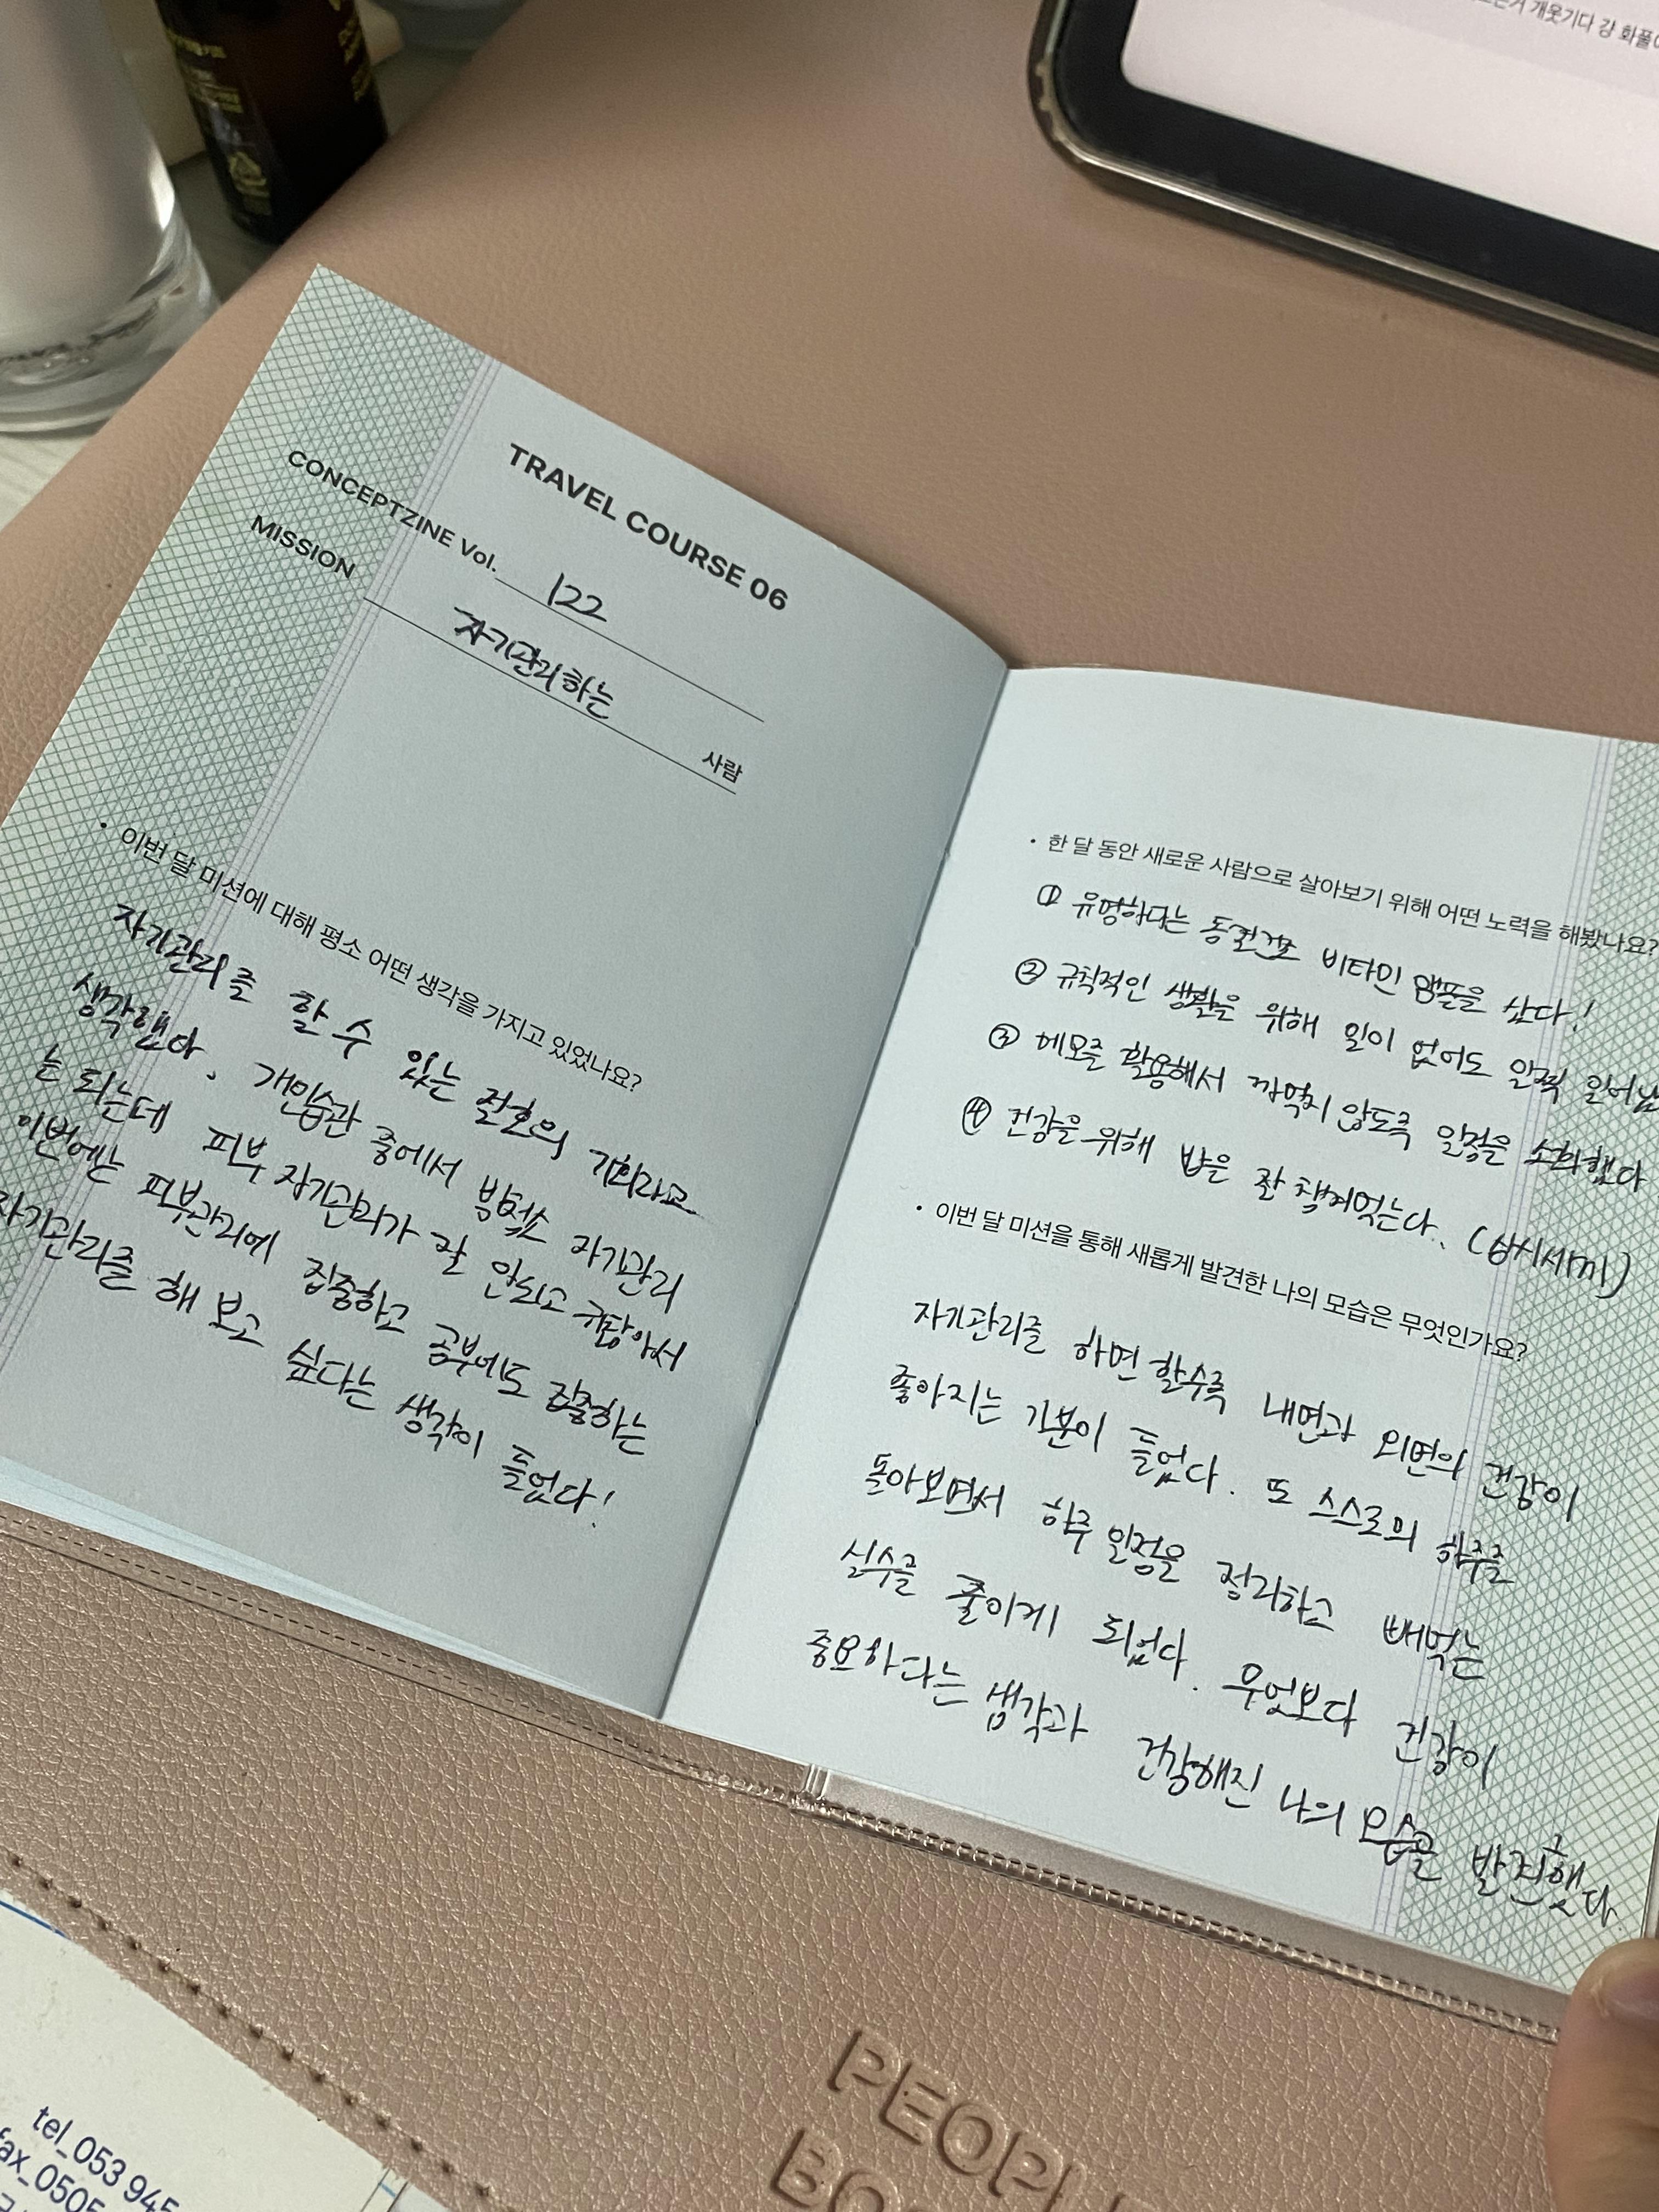 개웃기다 강 화풀이
TRAVEL COURSE 06
CONCEPTZINE Vol. 122
MISSION 자기관리하는
사람
• 이번 달 미션에 대해 평소 어떤 생각을 가지고 있었나요?
자기관리를 할 수 있는 절호의 기회라고
생각했다. 개인습관 중에서 방청소 자기관리
는 되는데 피부 자기관리가 잘 안되고 귀찮아서
이번에는 피부관리에 집중하고 공부에도 집중하는
자기관리를 해 보고 싶다는 생각이 들었다!
• 한 달 동안 새로운 사람으로 살아보기 위해 어떤 노력을 해봤나요?
① 유명하다는 동결건조 비타민 앰플을 샀다!
② 규칙적인 생활을 위해 일이 없어도 일찍 일어났
③ 메모를 활용해서 까먹지 않도록 일정을 소화했다
④ 건강을 위해 밥은 잘 챙겨먹는다.. (삼시세끼)
• 이번 달 미션을 통해 새롭게 발견한 나의 모습은 무엇인가요?
자기관리를 하면 할수록 내면과 외면의 건강이
좋아지는 기분이 들었다. 또 스스로의 하루를
돌아보면서 하루 일정을 정리하고 빼먹는
실수를 줄이게 되었다. 무엇보다 건강이
중요하다는 생각과 건강해진 나의 모습을 발견했다.
PEOPL
BO
tel_053 945
fax_0505